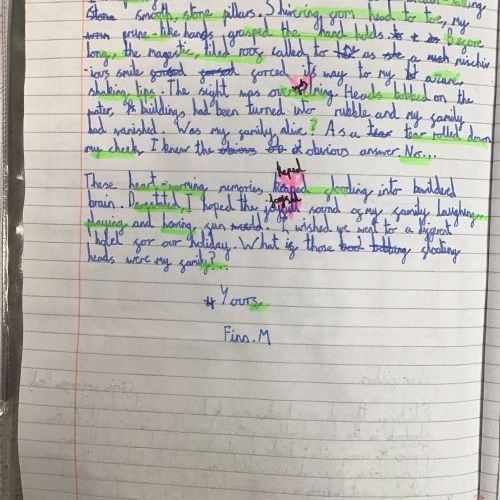 smooth, stone pillars. Shivering from head to toe, my
prune-like hands grasped the hand holds. Before
long, the magestic, tiled roof called to as a mischiv
ious smile forced it's way to my
shaking lips. The sight was overwhelming. Heads bobbed on the
water, buildings had been turned into rubble and my family
had vanished. Was my family alive? As a tear rolled down
my cheek, I knew the obvious answer No...
hoped
These heart-warming memories flooding into bewildered
brain. Devastated, I hoped the joyful sound of my family laughing,
playing and having fun. I wished we went to a different
hotel for our holiday. What if those floating
heads were my family?...
Yours,
Finn.M